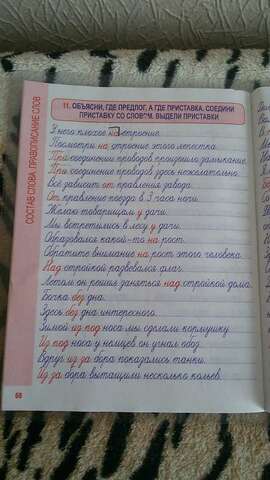 СОСТАВ СЛОВА. ПРАВОПИСАНИЕ СЛОВ
11. ОБЪЯСНИ, ГДЕ ПРЕДЛОГ, А ГДЕ ПРИСТАВКА. СОЕДИНИ
ПРИСТАВКУ СО СЛОВОМ. ВЫДЕЛИ ПРИСТАВКИ
У него плохое на строение.
Посмотри на строение этого лепестка.
При соединении проводов произошло замыкание.
При соединение проводов здесь нежелательно.
Всё зависит от правления завода.
От правление поезда в 3 часа ночи.
Желаю товарищам у дачи.
Мы встретились в лесу у дачи.
Образовался какой-то на рост.
Обратите внимание на рост этого человека.
Над стройкой развевался флаг.
Летом он решил заняться над стройкой дома.
Бочка без дна.
Здесь без дна интересного.
Зимой из под носа мы сделали кормушку.
Из под носа у немцев он угнал обоз.
Вдруг из за бора показались танки.
Из за бора вытащили несколько кольев.
60